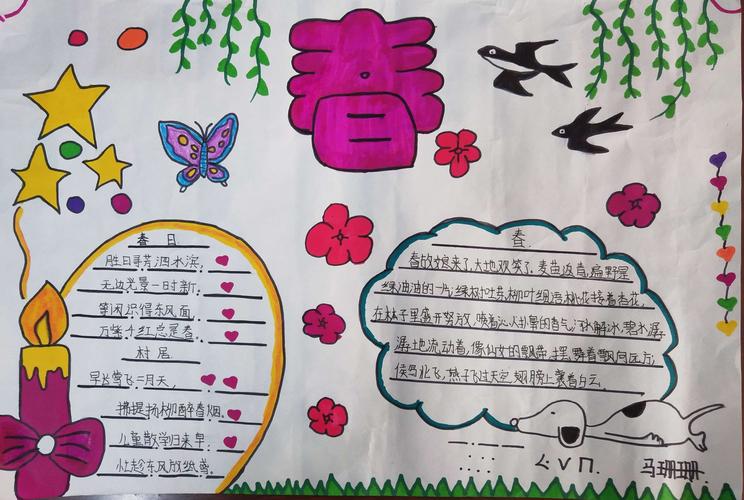 春
春日
胜日寻芳泗水滨,
无边光景一时新,
等闲识得东风面,
万紫千红总是春.
村居
草长莺飞二月天,
拂提扬柳醉春烟.
儿童散学归来早,
忙趁东风放纸鸢.
春
春姑娘来了,大地欢笑了.麦苗返青,遍野是
绿油油的一片;绿树吐芽,柳叶细弯,桃花接着杏花,
在林子里盛开努放,喷着沁人的香气,河水解冰,碧水潺
潺地流动着,像仙女的飘带,摆舞着飘向远方;
候鸟北飞,燕子飞过天空,翅膀上裹着白云.
马珊珊